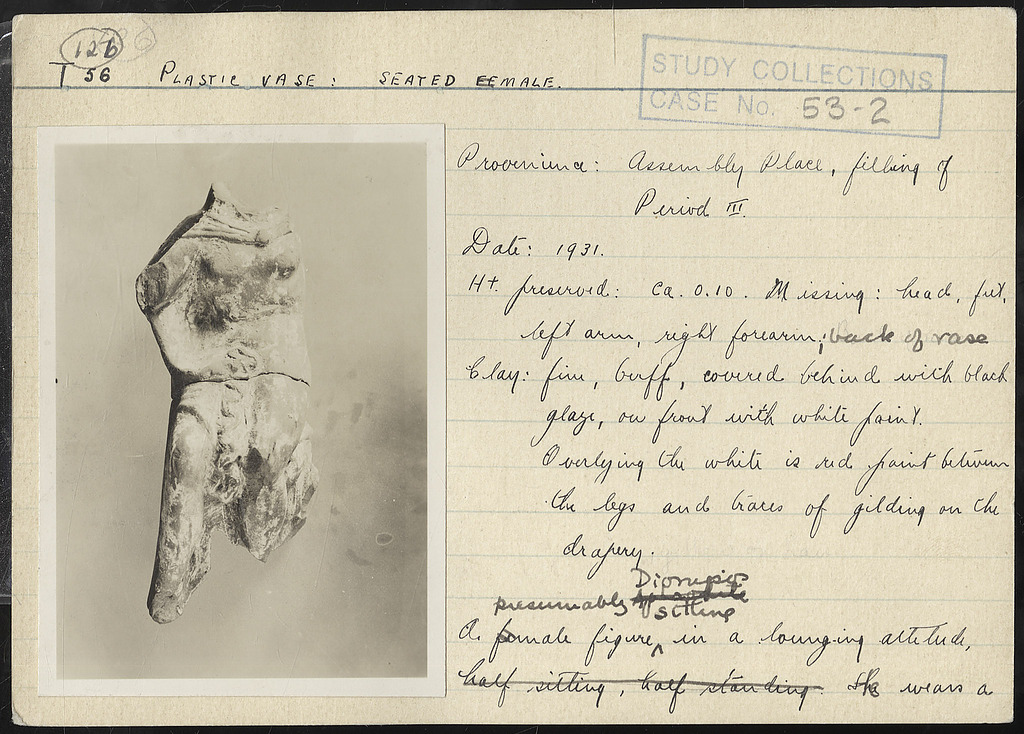 126
T 56 PLASTIC VASE: SEATED FEMALE.
STUDY COLLECTIONS
CASE No. 53-2
Provenience: Assembly Place, filling of
Period III.
Date: 1931.
Ht. preserved: Ca. 0.10. Missing: head, feet,
left arm, right forearm; back of vase
Clay: fine, buff, covered behind with black
glaze, on front with white paint.
Overlying the white is red paint between
the legs and traces of gilding on the
drapery.
Dionysos
presumably Aphrodite
sitting
A female figure, in a lounging attitude,
half sitting, half standing. She wears a